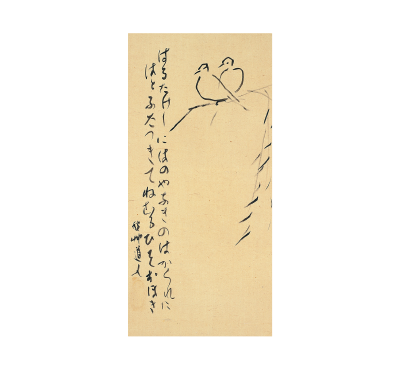 はるたけしにはのやなきのはかくれに
はとふたつきてねむるひそおほき
秋艸道人